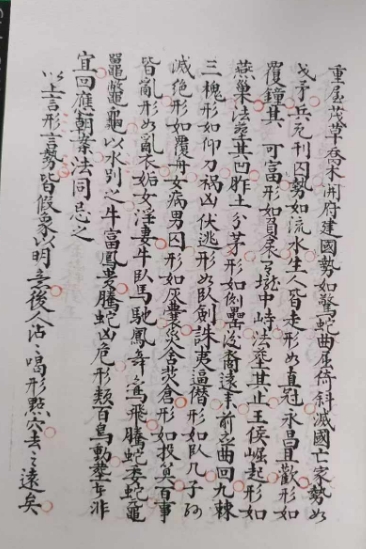 重屋茂草喬木開府建國勢如驚蛇曲屈倚斜滅國亡家勢如
戈矛兵死刑囚勢如流水生人皆走形如直冠永昌且歡形如
覆鐘其可富形如負扆有壠中峙法塟其止王侯崛起形如
燕巢法塟其凹胙土分茅形如側罍後裔遠來前曲回九棘
三槐形如仰刀禍凶伏逃形如臥劍誅夷逼僭形如臥几子孫
滅絕形如覆舟女病男囚形如灰囊災舍焚倉形如投算百事
皆亂形如亂衣妬女淫妻牛臥馬馳鳳舞鸞飛騰蛇委蛇黿
鼉鱉龜以水別之牛富鳳貴騰蛇凶危形類百鳥動塟皆非
宜回應朝案法同忌之
以上言形言勢皆假象以明之後人沾沾喝形點穴去之遠矣